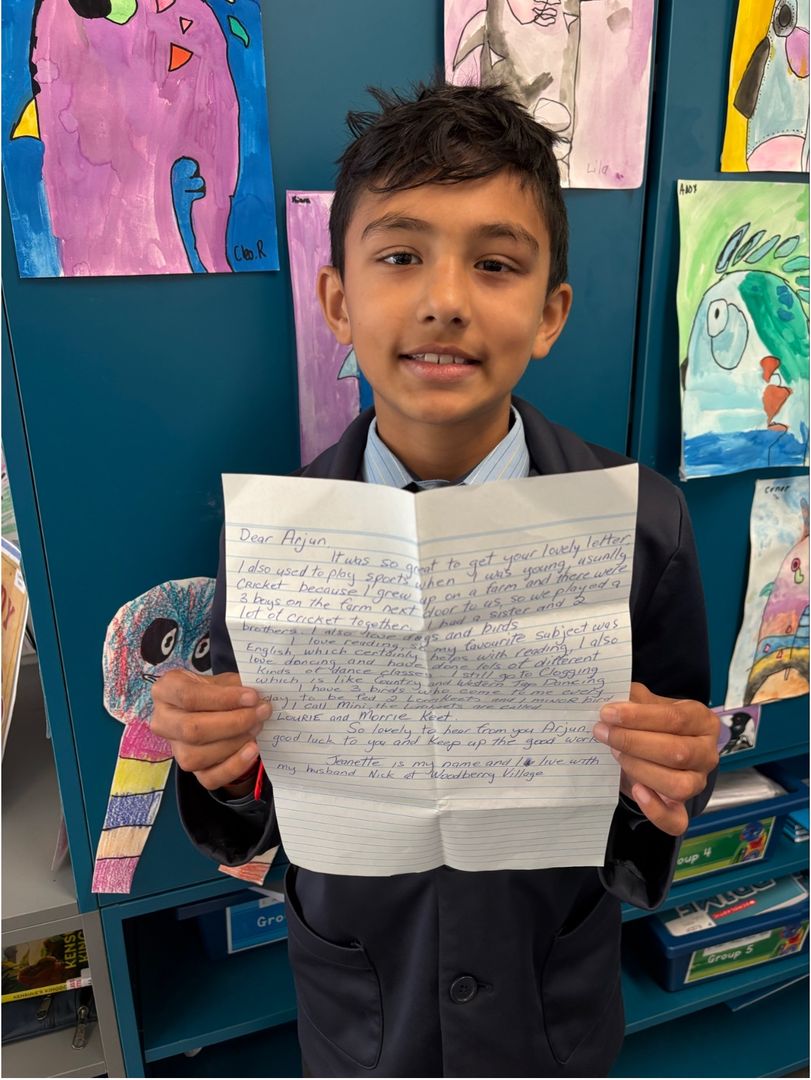 Cleo.R
Lila
Dear Arjun
It was so great to get your lovely letter,
I also used to play sports when I was young, usually
Cricket because I grew up on a farm and there were
3 boys on the farm next door to us, so we played a
lot of cricket together. I had a sister and 2
brothers. I also love dogs and birds
I love reading, so my favourite subject was
English, which certainly helps with reading, I also
love dancing and have done lots of different
kinds of dance classes. I still go to Clogging
which is like Country and Western Tap Dancing
I have 3 birds who come to me every
day to be fed 2 Lorrikeets and 1 minor bird
I call Mini, the Lorrikeets are called
LouRIE and Morrie Keet.
So lovely to hear from you Arjun,
good luck to you and keep up the good work
Jeanette is my name and I live with
my husband Nick at Woodberry Village
Conor
Group 4
Gro
PRIME
SCHOLASTIC
Group 5
KENS
KING